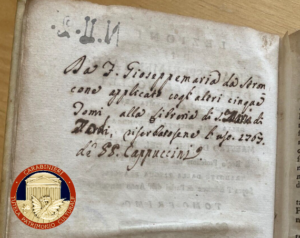 Da F. Gioseppemaria da Stron
cone applicato cogl' altri cinque
Tomi alla Libreria di
riserbatosene l'uso. 1767.
de PP. Cappuccini
CARABINIERI
TUTELA PATRIMONIO CULTURALE